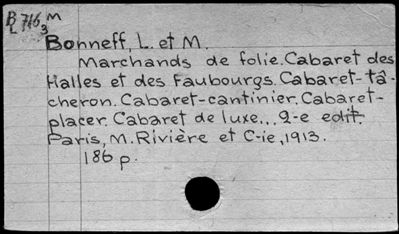 B 716 M
L 3
Bonneff, L. et M.
Marchands de folie. Cabaret des
Halles et des Faubourgs. Cabaret-tâ-
cheron. Cabaret-cantinier. Cabaret-
placer. Cabaret de luxe... 2-e edit.
Paris, M. Rivière et C-ie, 1913.
186 p.